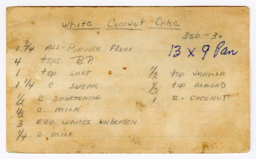 White Coconut Cake
350-30
13 x 9 Pan
1 3/4 All-Purpose Flour
4 tsps B.P.
1 tsp Salt
1 1/4 c Sugar
1/2 c Shortening
1/2 c. milk
3 Egg Whites Unbeaten
1/4 c. milk
1/2 tsp Vanilla
1/2 tsp Almond
1 c. Coconut